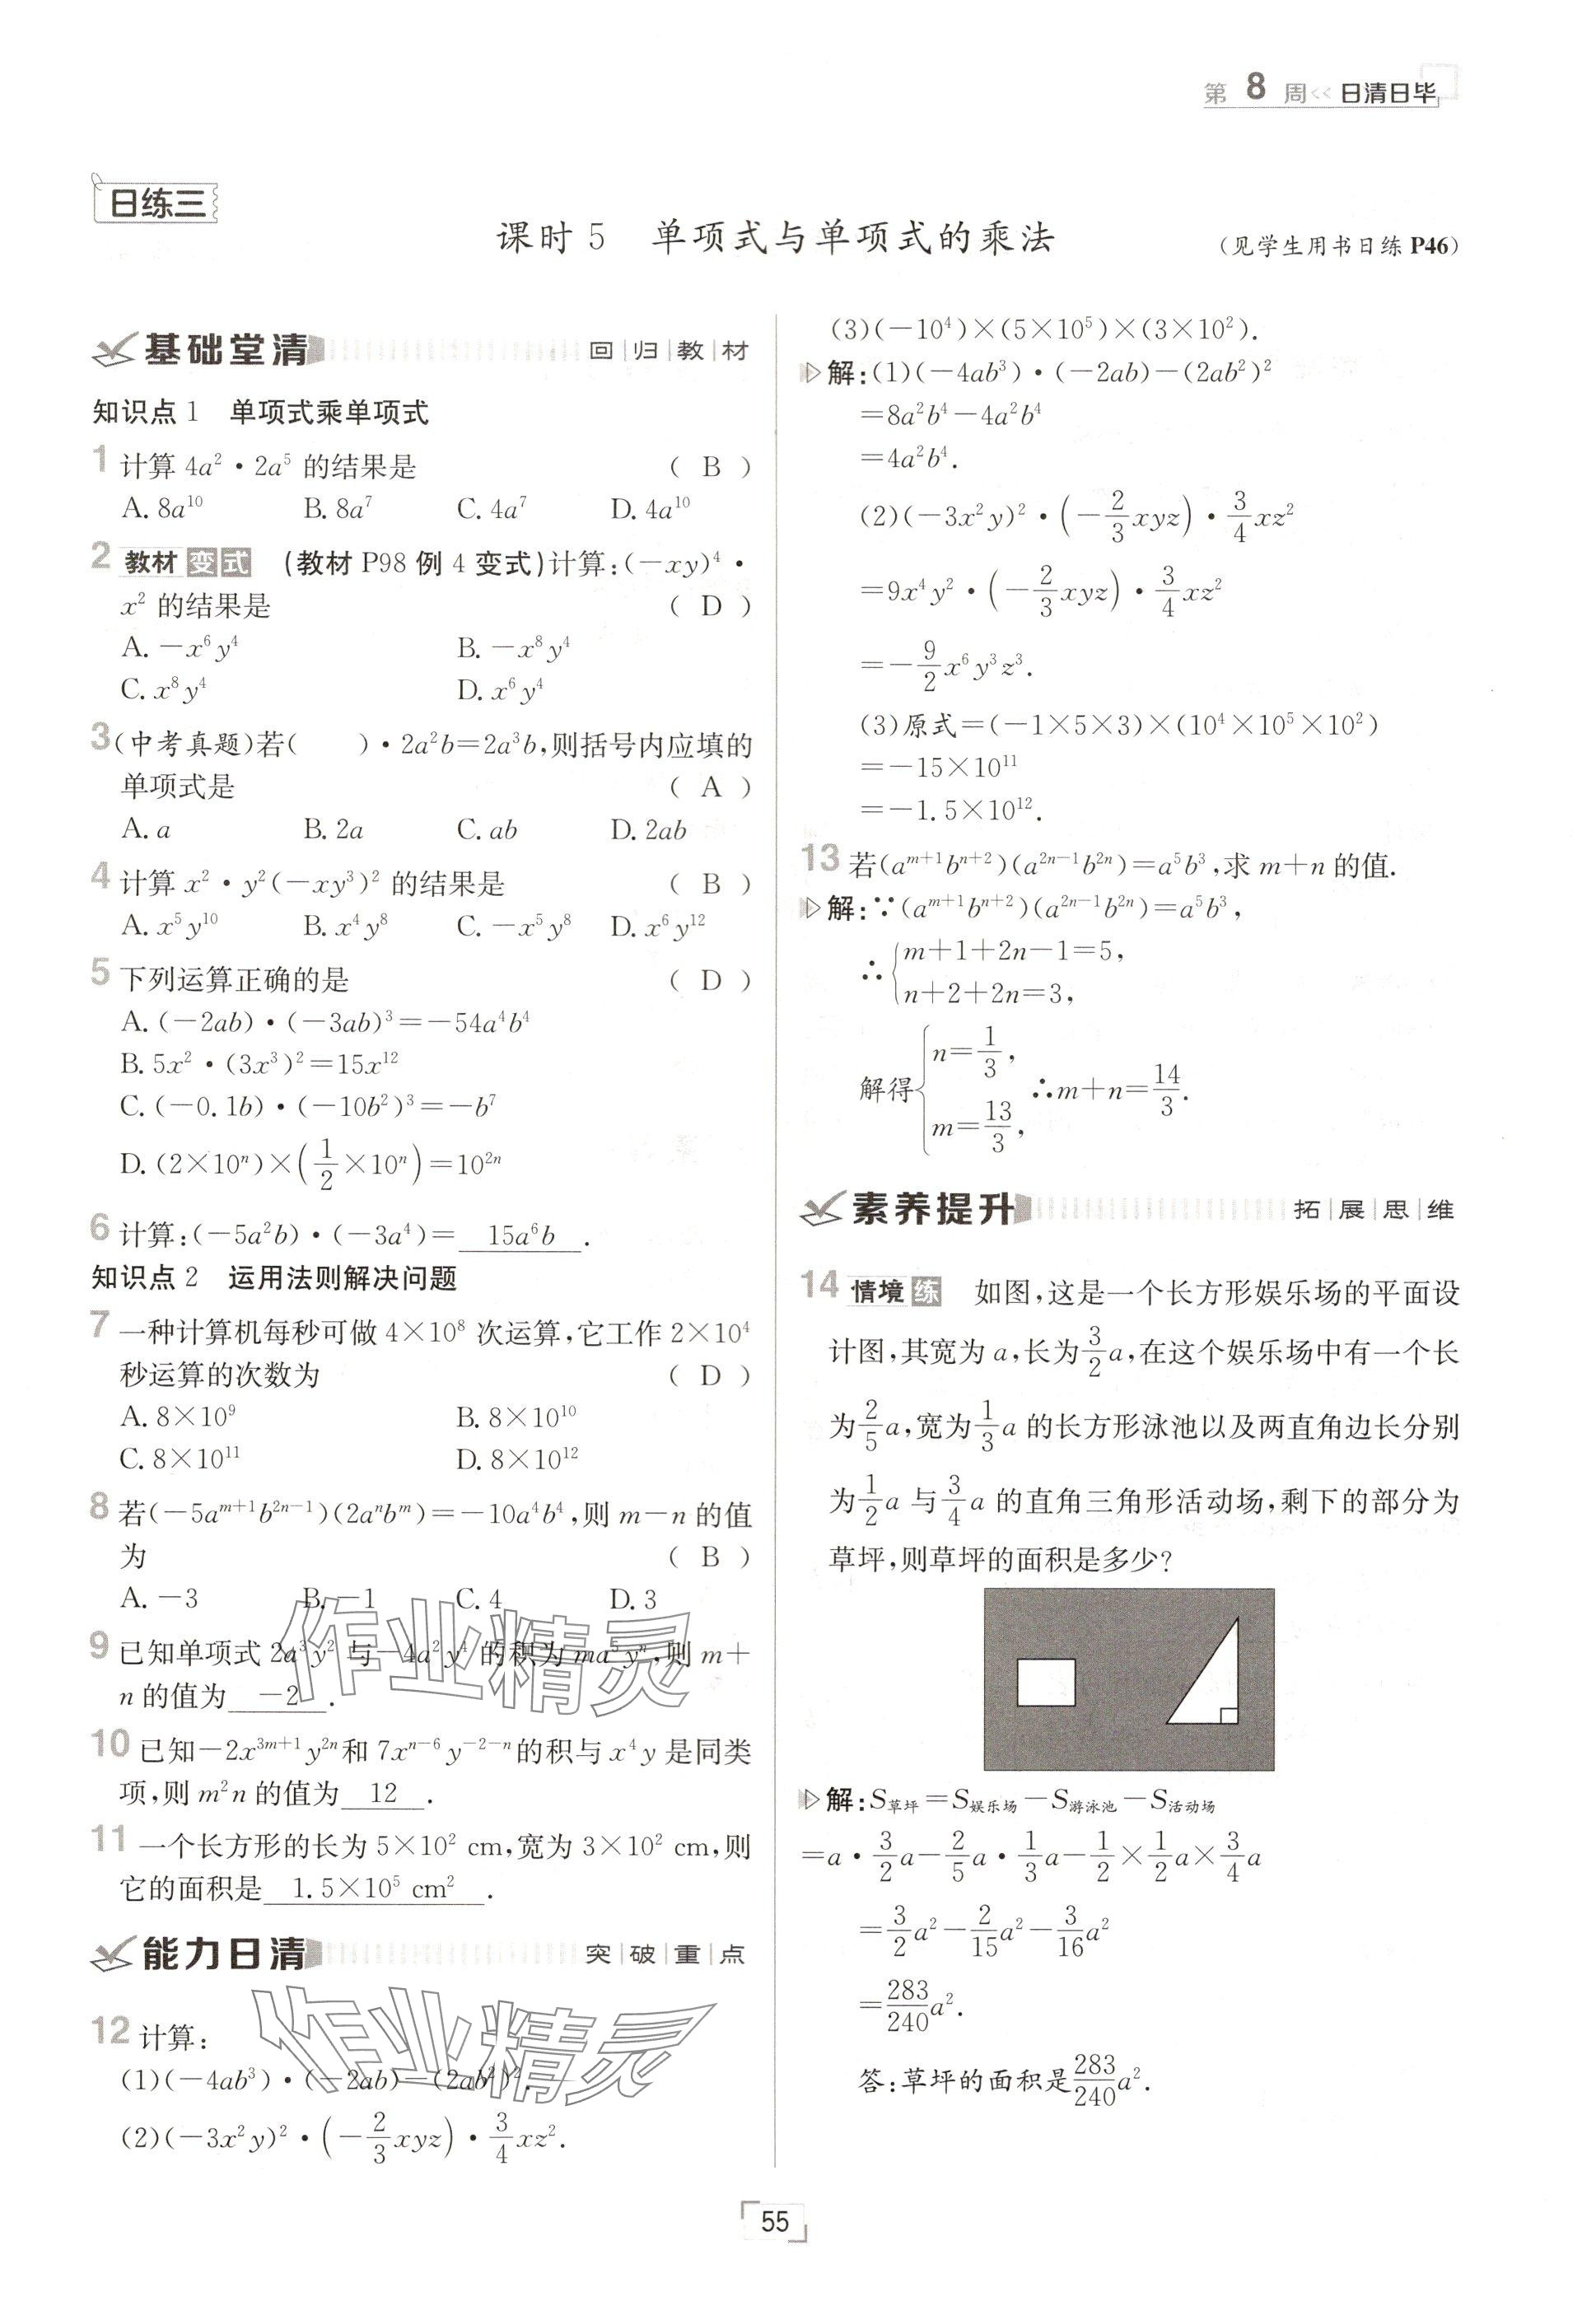 第 8 周<< 日清日毕
日练三
课时 5　单项式与单项式的乘法　(见学生用书日练 P46)
基础堂清　回|归|教|材
知识点 1　单项式乘单项式
1 计算 4a²·2a⁵ 的结果是 ( B )
A. 8a¹⁰　B. 8a⁷　C. 4a⁷　D. 4a¹⁰
2 教材 变式 (教材 P98 例 4 变式)计算:(−xy)⁴·
x² 的结果是 ( D )
A. −x⁶y⁴　B. −x⁸y⁴
C. x⁸y⁴　D. x⁶y⁴
3 (中考真题)若(　　)·2a²b=2a³b,则括号内应填的
单项式是 ( A )
A. a　B. 2a　C. ab　D. 2ab
4 计算 x²·y²(−xy³)² 的结果是 ( B )
A. x⁵y¹⁰　B. x⁴y⁸　C. −x⁵y⁸　D. x⁶y¹²
5 下列运算正确的是 ( D )
A. (−2ab)·(−3ab)³=−54a⁴b⁴
B. 5x²·(3x³)²=15x¹²
C. (−0.1b)·(−10b²)³=−b⁷
D. (2×10ⁿ)×(1/2×10ⁿ)=10²ⁿ
6 计算:(−5a²b)·(−3a⁴)= 15a⁶b .
知识点 2　运用法则解决问题
7 一种计算机每秒可做 4×10⁸ 次运算,它工作 2×10⁴
秒运算的次数为 ( D )
A. 8×10⁹　B. 8×10¹⁰
C. 8×10¹¹　D. 8×10¹²
8 若(−5aᵐ⁺¹b²ⁿ⁻¹)(2aⁿbᵐ)=−10a⁴b⁴,则 m−n 的值
为 ( B )
A. −3　B. −1　C. 4　D. 3
9 已知单项式 2a³y² 与−4a²y⁴ 的积为 ma⁵yⁿ,则 m+
n 的值为 −2 .
10 已知−2x³ᵐ⁺¹y²ⁿ和 7xⁿ⁻⁶y⁻²⁻ⁿ的积与 x⁴y 是同类
项,则 m²n 的值为 12 .
11 一个长方形的长为 5×10² cm,宽为 3×10² cm,则
它的面积是 1.5×10⁵ cm² .
能力日清　突|破|重|点
12 计算:
(1)(−4ab³)·(−2ab)−(2ab²)².
(2)(−3x²y)²·(−2/3xyz)·3/4xz².
(3)(−10⁴)×(5×10⁵)×(3×10²).
解:(1)(−4ab³)·(−2ab)−(2ab²)²
=8a²b⁴−4a²b⁴
=4a²b⁴.
(2)(−3x²y)²·(−2/3xyz)·3/4xz²
=9x⁴y²·(−2/3xyz)·3/4xz²
=−9/2x⁶y³z³.
(3)原式=(−1×5×3)×(10⁴×10⁵×10²)
=−15×10¹¹
=−1.5×10¹².
13 若(aᵐ⁺¹bⁿ⁺²)(a²ⁿ⁻¹b²ⁿ)=a⁵b³,求 m+n 的值.
解:∵(aᵐ⁺¹bⁿ⁺²)(a²ⁿ⁻¹b²ⁿ)=a⁵b³,
∴{m+1+2n−1=5,
n+2+2n=3,
解得{n=1/3,
m=13/3, ∴m+n=14/3.
素养提升　拓|展|思|维
14 情境 练　如图,这是一个长方形娱乐场的平面设
计图,其宽为 a,长为3/2a,在这个娱乐场中有一个长
为2/5a,宽为1/3a 的长方形泳池以及两直角边长分别
为1/2a 与3/4a 的直角三角形活动场,剩下的部分为
草坪,则草坪的面积是多少?
解:S草坪=S娱乐场−S游泳池−S活动场
=a·3/2a−2/5a·1/3a−1/2×1/2a×3/4a
=3/2a²−2/15a²−3/16a²
=283/240a².
答:草坪的面积是283/240a².
作业精灵
作业精灵
55